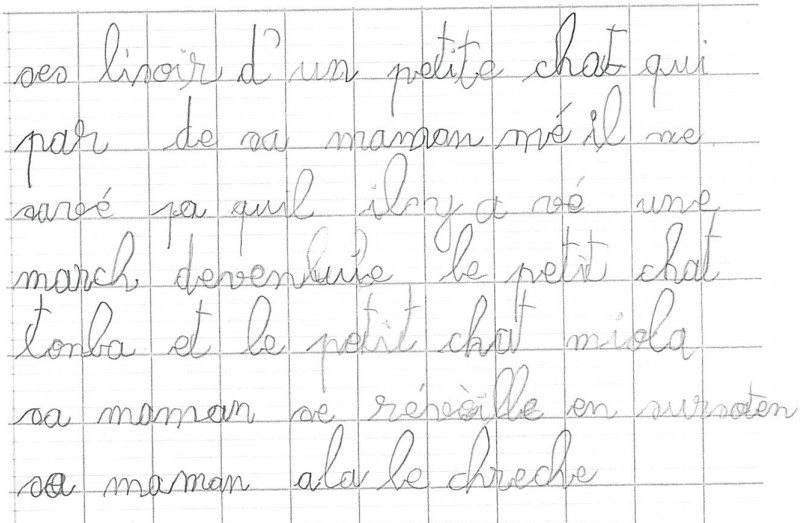 ses lisoir d'un petite chat qui
par de sa maman mé il ne
savé pa quil ilny a vé une
march devenluile le petit chat
tonba et le petit chat miola
sa maman se réveille en sursoten
sa maman ala le chreche